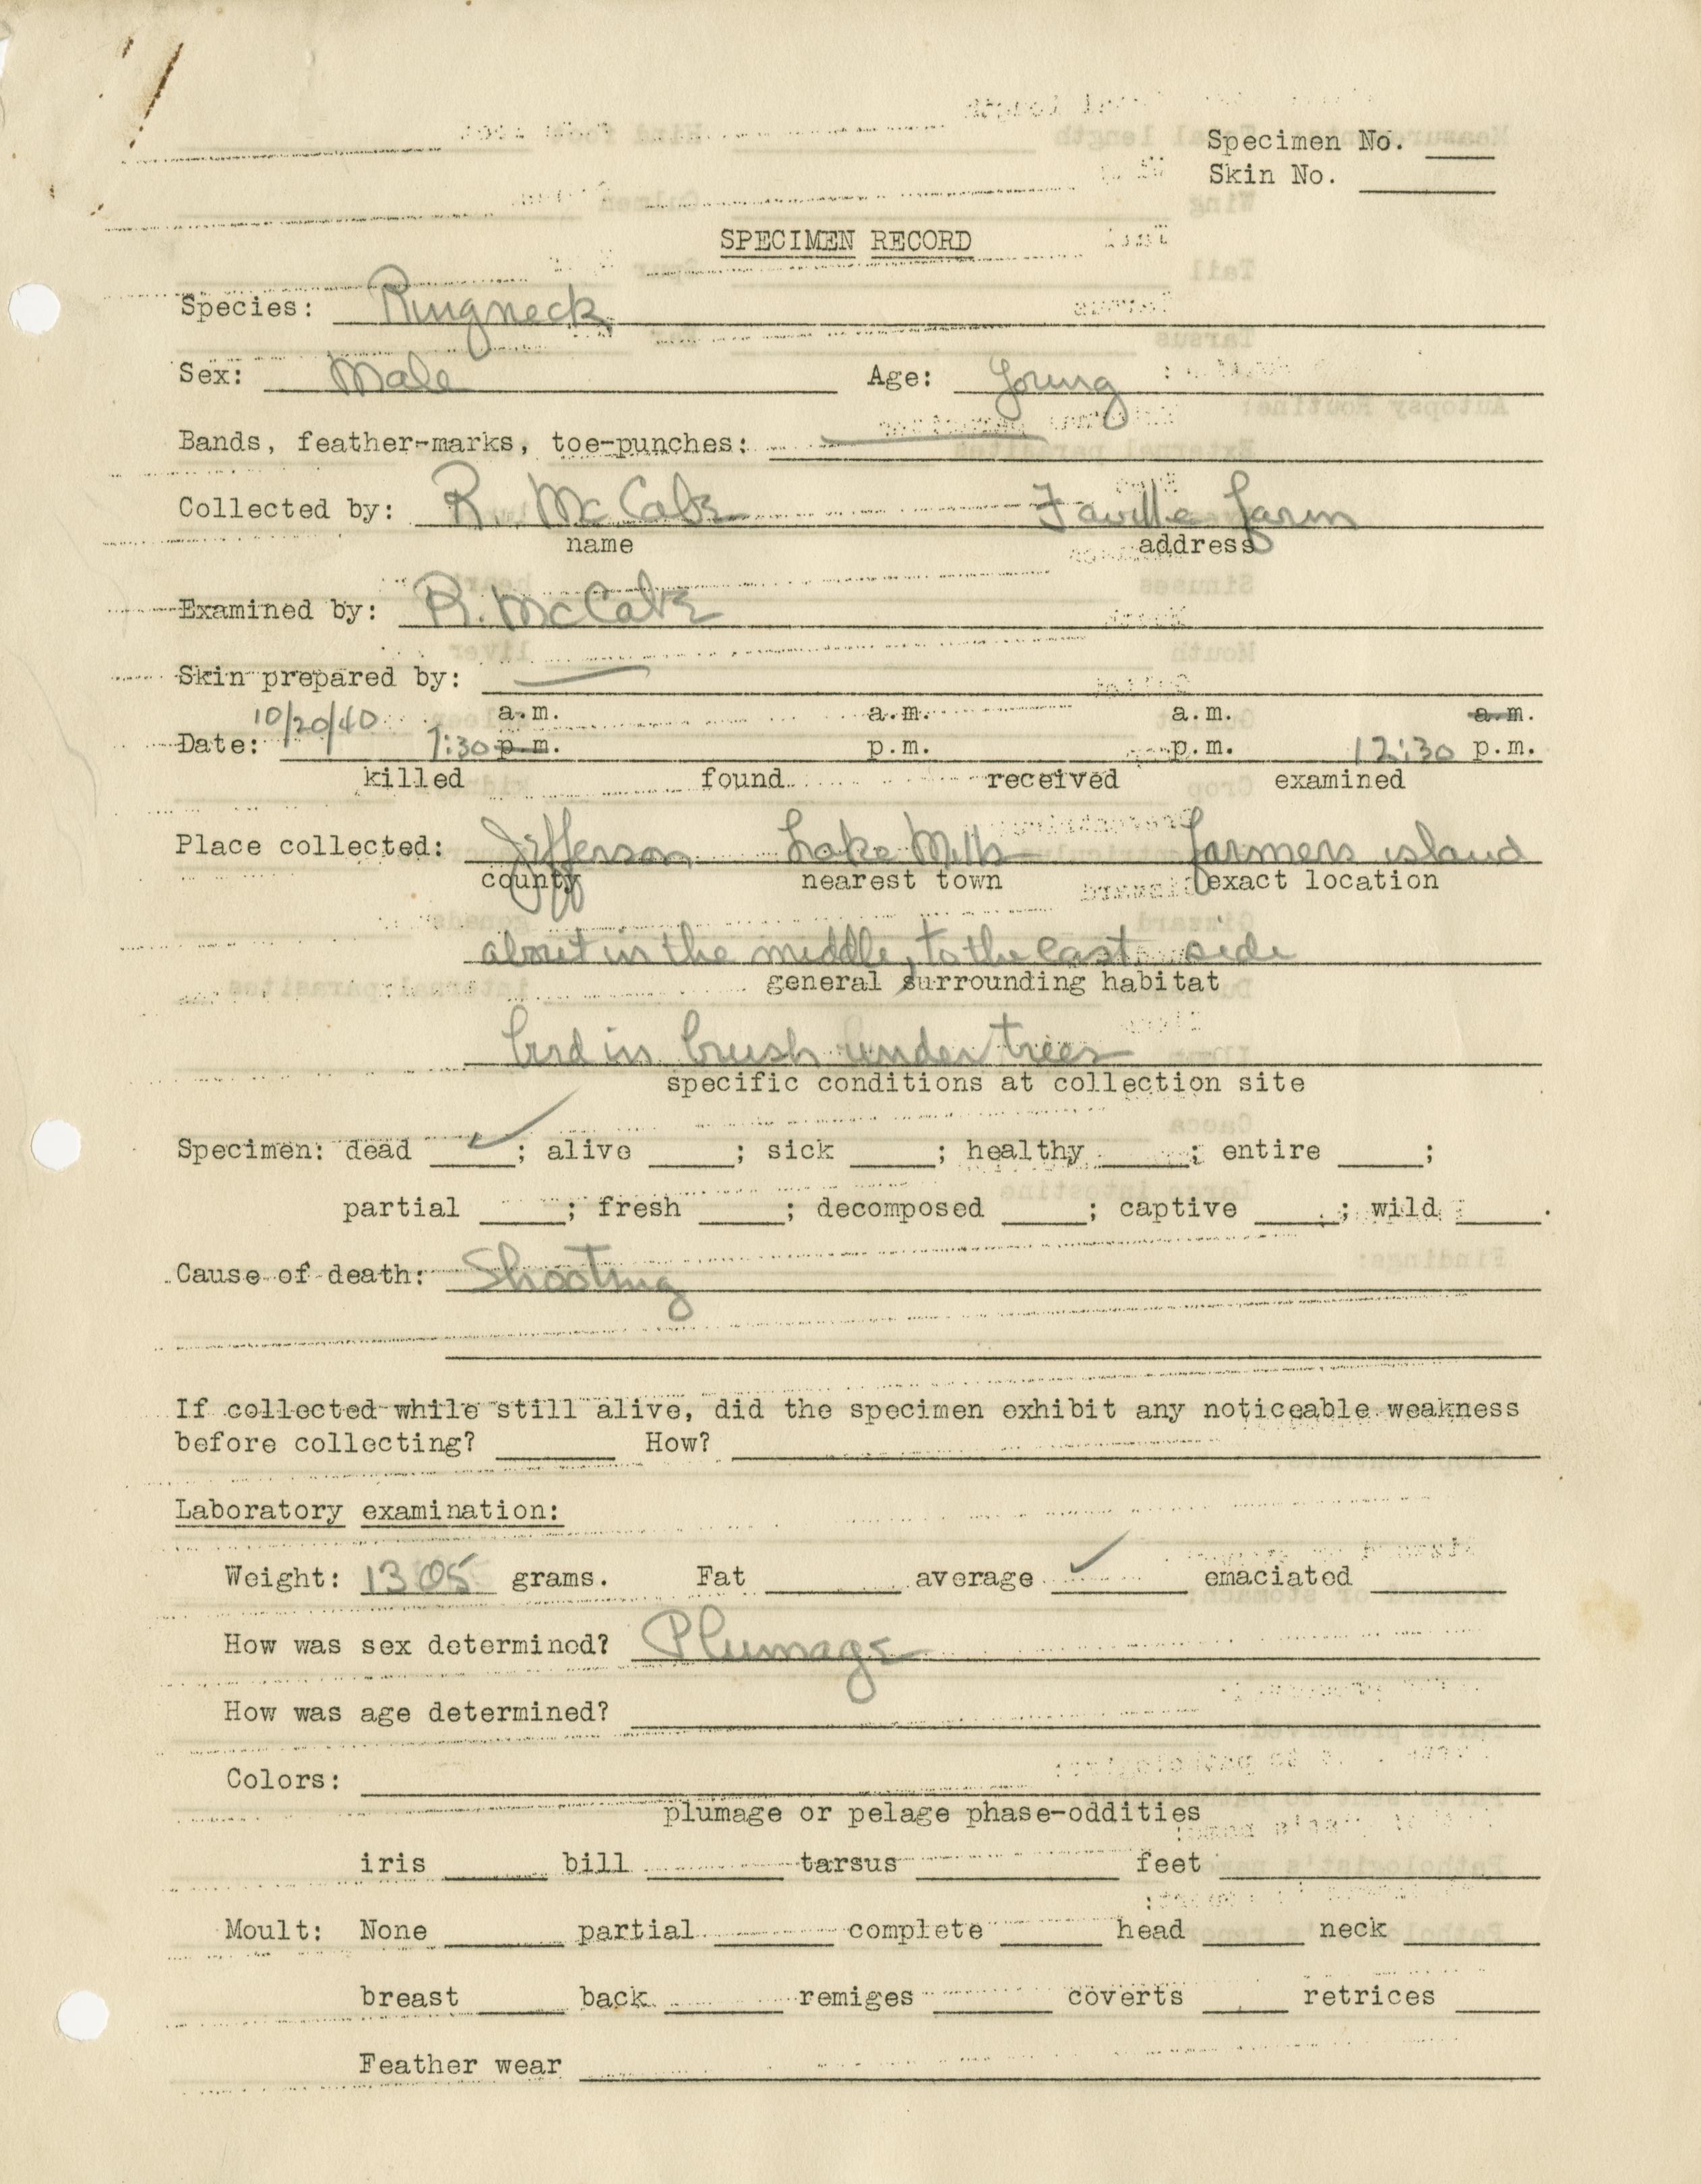 Specimen No. ____
Skin No. ____
SPECIMEN RECORD
Species: Ringneck
Sex: Male Age: Young
Bands, feather-marks, toe-punches: —
Collected by: R. McCabe Faville farm
name address
Examined by: R. McCabe
Skin prepared by: —
10/20/40 a.m. a.m. a.m. a.m.
Date: 7:30 p.m. p.m. p.m. 12:30 p.m.
killed found received examined
Place collected: Jefferson Lake Mills farmers island
county nearest town exact location
about in the middle, to the east side
general surrounding habitat
bird in brush under trees
specific conditions at collection site
Specimen: dead ✓; alive ____; sick ____; healthy ____; entire ____;
partial ____; fresh ____; decomposed ____; captive ____; wild ____.
Cause of death: Shooting
If collected while still alive, did the specimen exhibit any noticeable weakness
before collecting? ____ How? ____
Laboratory examination:
Weight: 1305 grams. Fat ____ average ✓ emaciated ____
How was sex determined? Plumage
How was age determined? ____
Colors: ____
plumage or pelage phase-oddities
iris ____ bill ____ tarsus ____ feet ____
Moult: None ____ partial ____ complete ____ head ____ neck ____
breast ____ back ____ remiges ____ coverts ____ retrices ____
Feather wear ____